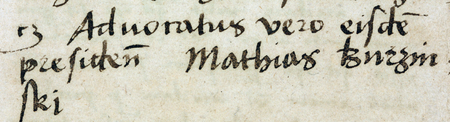 Advocatus vero eisdē
presidēn Mathias Burzin
ski